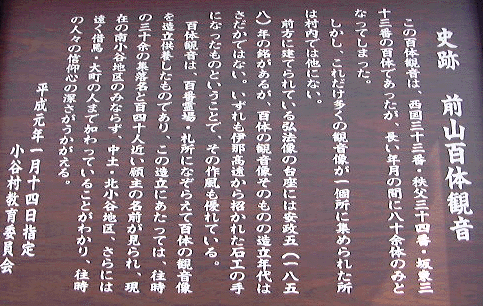 史跡 前山百体観音
この百体観音は、西国三十三番・秩父三十四番・坂東三
十三番の百体であったが、長い年月の間に八十余体のみと
なってしまった。
しかし、これだけ多くの観音像が一個所に集められた所
は村内では他にない。
前方に建てられている弘法像の台座には安政五（一八五
八）年の銘があるが、百体の観音像そのものの造立年代は
さだかではない。いずれも伊那高遠から招かれた石工の手
になったものということで、その作風も優れている。
百体観音は、百番霊場・札所になぞらえて百体の観音像
を造立供養したものであり、この造立にあたっては、往時
の三十余の集落名と百四十人近い願主の名前が見られ、現
在の南小谷地区のみならず、中土・北小谷地区、さらには
遠く借馬・大町の人まで加わっていることがわかり、往時
の人々の信仰心の深さがうかがえる。
平成元年一月十四日指定
小谷村教育委員会